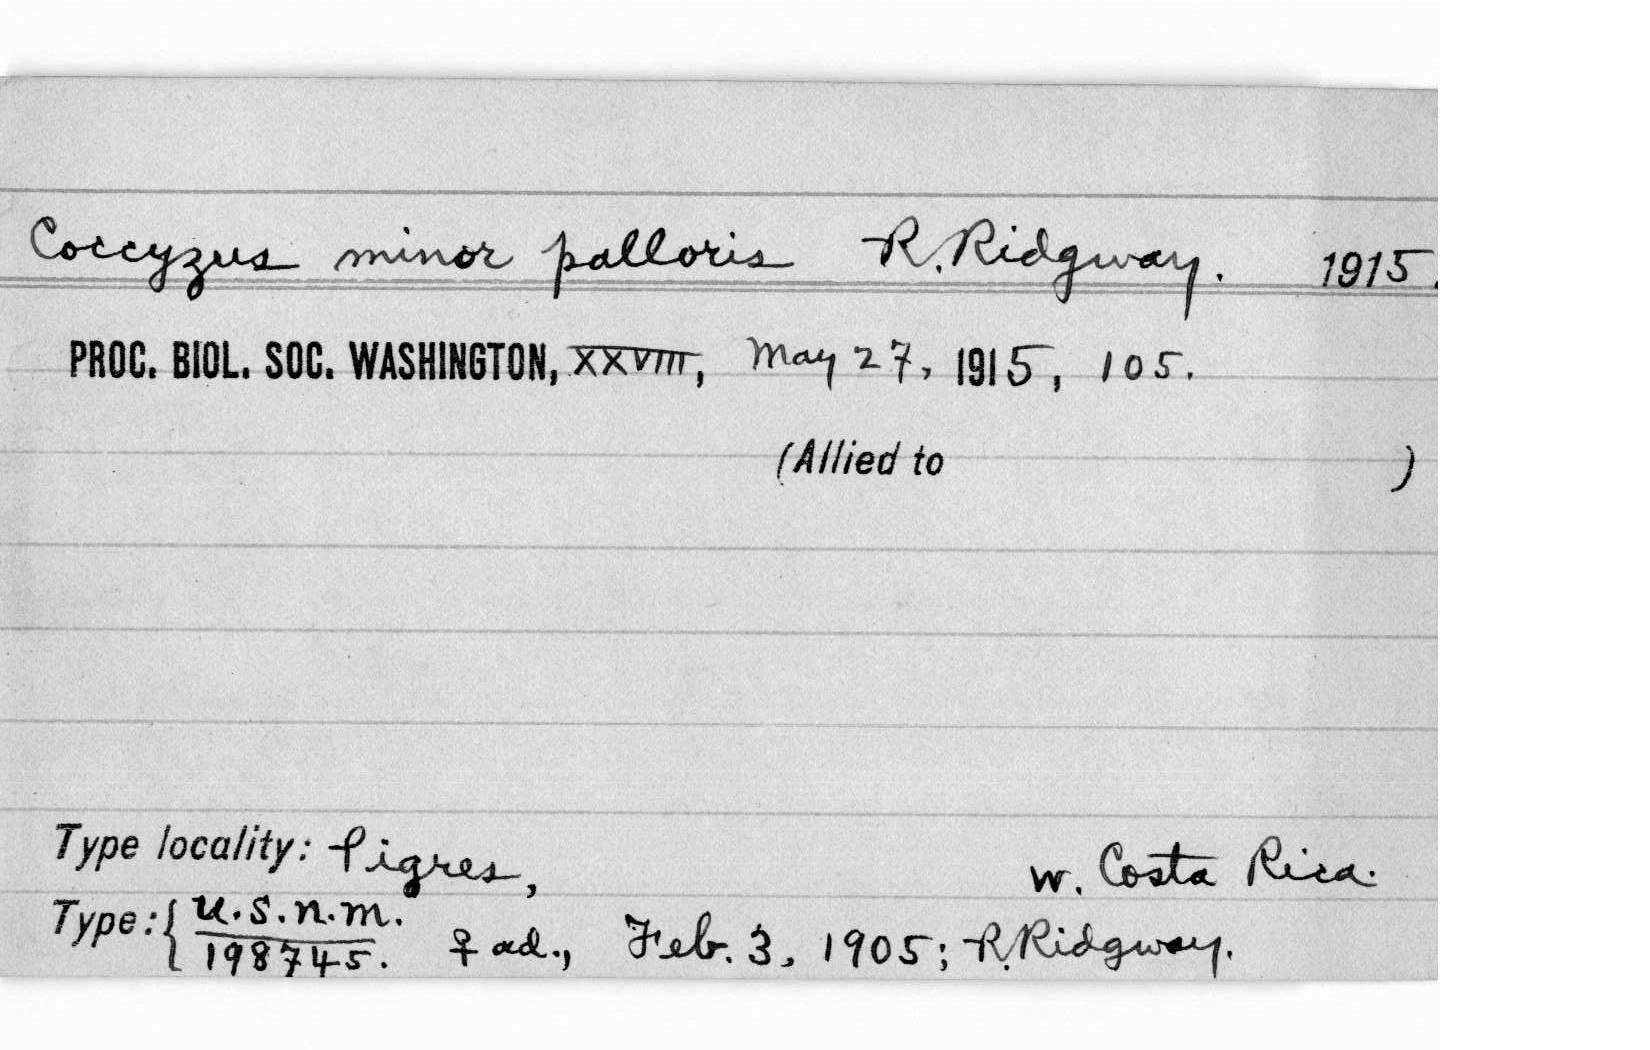 Coccyzus minor palloris R. Ridgway. 1915.
PROC. BIOL. SOC. WASHINGTON, XXVIII, May 27, 1915, 105.
(Allied to )
Type locality: Pigres, W. Costa Rica.
Type: { U.S.N.M.
198745. ♀ ad., Feb. 3, 1905; R. Ridgway.